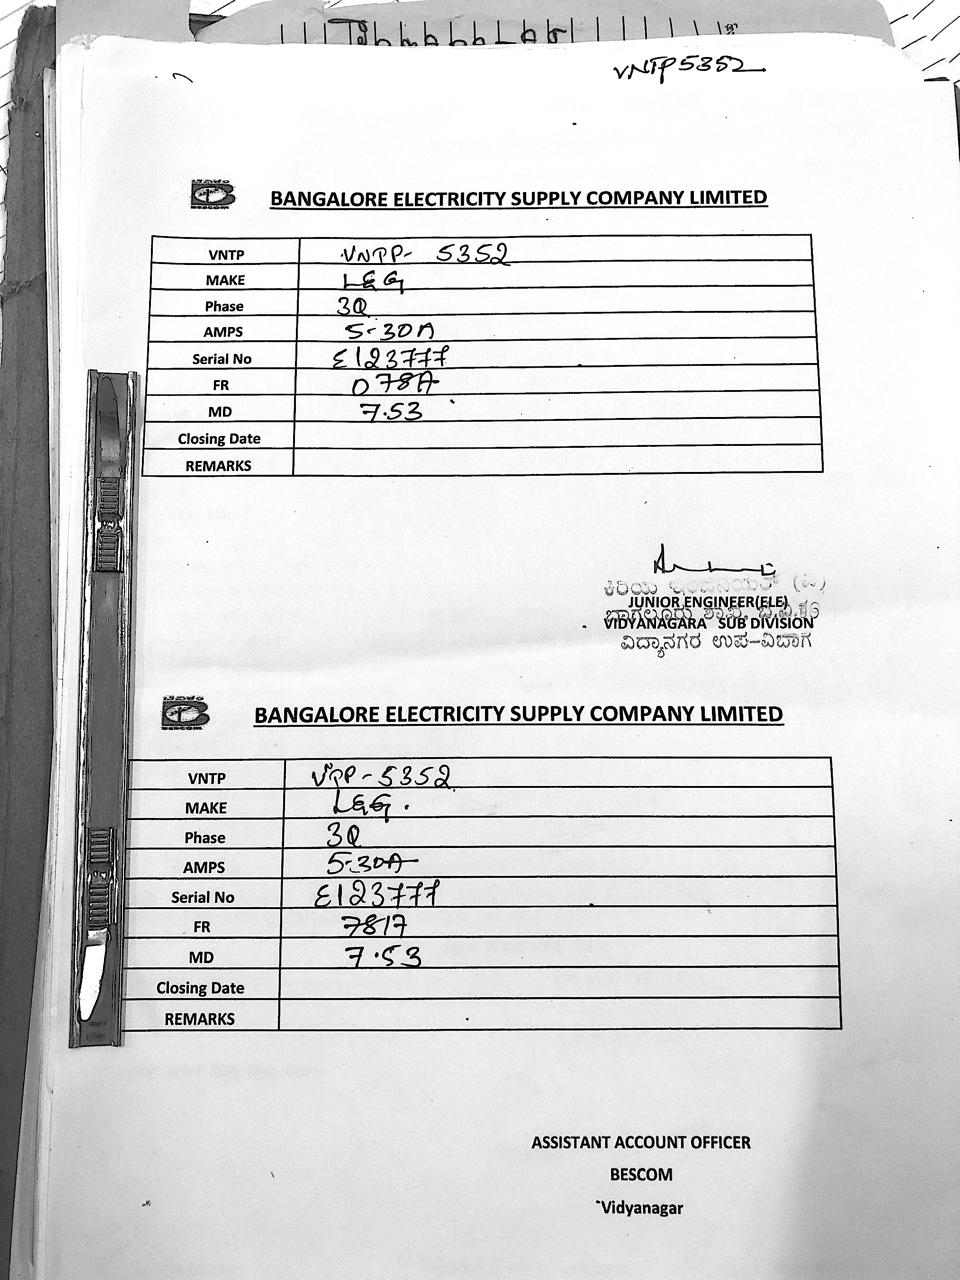 VNTP5352
BESCOM
BANGALORE ELECTRICITY SUPPLY COMPANY LIMITED
VNTP VNTP- 5352
MAKE L&G
Phase 3Φ
AMPS 5-30A
Serial No E123777
FR 078A
MD 7.53
Closing Date
REMARKS
ಕಿರಿಯ ಇಂಜಿನಿಯರ್ (ವಿ)
JUNIOR ENGINEER(ELE)
ಬಾಗಲೂರು ಶಾಖೆ,
VIDYANAGARA SUB DIVISION
ವಿದ್ಯಾನಗರ ಉಪ-ವಿಭಾಗ
BESCOM
BANGALORE ELECTRICITY SUPPLY COMPANY LIMITED
VNTP VTPP-5352
MAKE L&G.
Phase 3Φ
AMPS 5-30A
Serial No E123777
FR 7817
MD 7.53
Closing Date
REMARKS
ASSISTANT ACCOUNT OFFICER
BESCOM
Vidyanagar